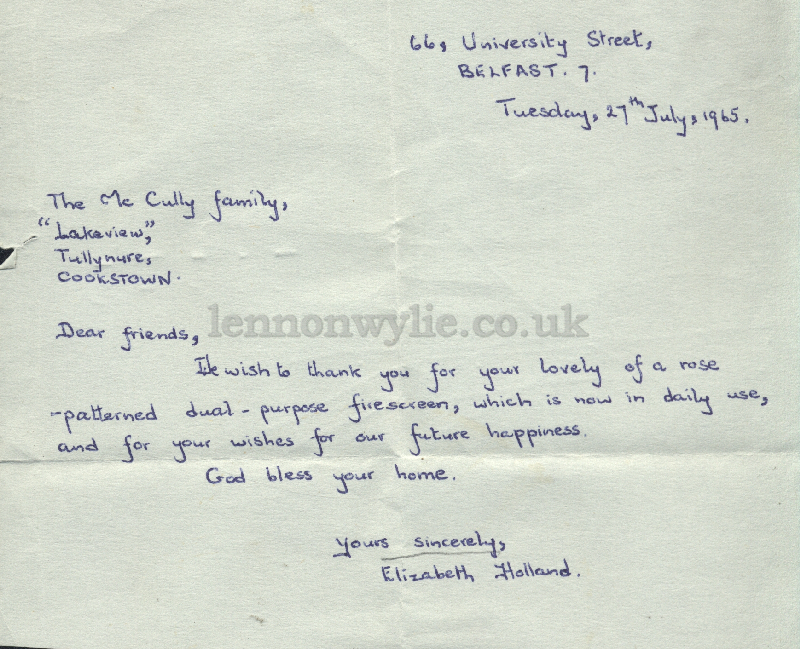 66, University Street,
BELFAST. 7.
Tuesday, 27th July, 1965.
The Mc Cully family,
"Lakeview,"
Tullynure,
COOKSTOWN.
lennonwylie.co.uk
Dear friends,
We wish to thank you for your lovely of a rose
-patterned dual-purpose firescreen, which is now in daily use,
and for your wishes for our future happiness.
God bless your home.
Yours sincerely,
Elizabeth Holland.